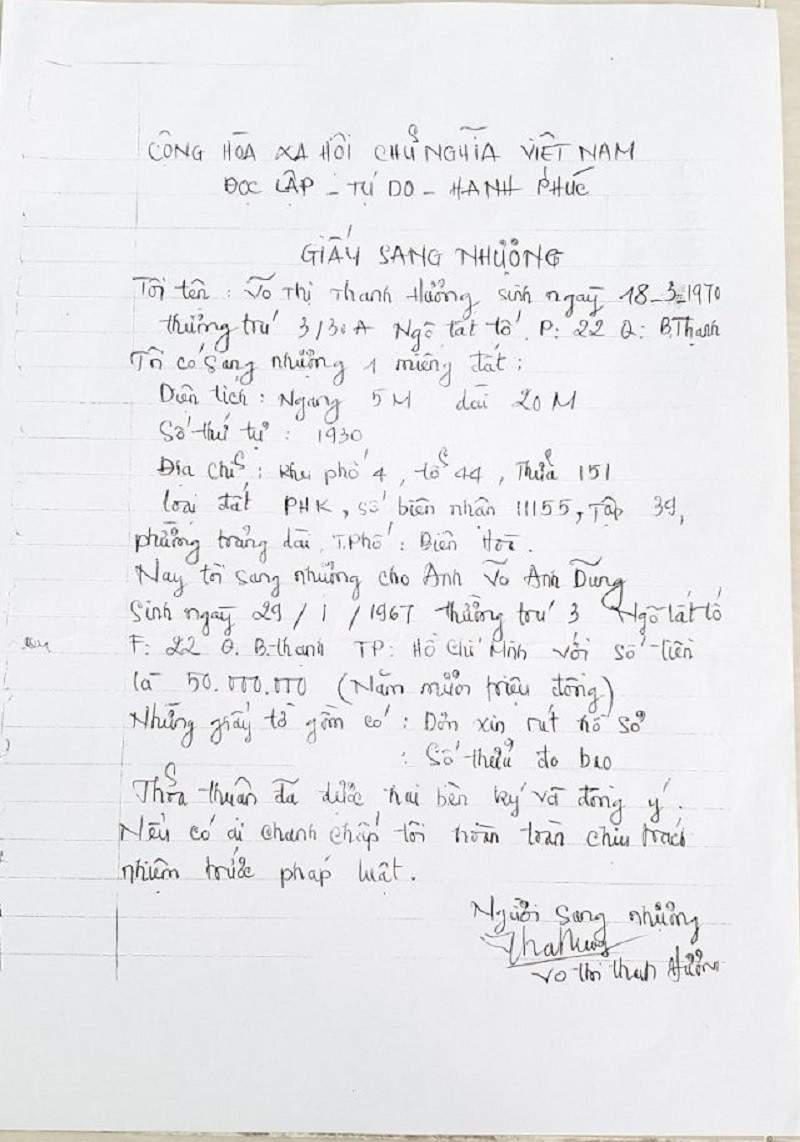 CỘNG HÒA XA HÔI CHỦ NGHĨA VIỆT NAM
ĐỌC LẬP - TỰ DO - HẠNH PHÚC
GIẤY SANG NHƯỢNG
Tôi tên : Võ Thị Thanh Hưởng sinh ngày 18-3-1970
thường trú 3/30A Ngô tất tố. P: 22 Q: B.Thạnh
Tôi có sang nhượng 1 miếng đất :
Diện tích : Ngang 5M dài 20M
Số thứ tự : 1930
Địa chỉ : khu phố 4, tổ 44, Thửa 151
loại đất PHK, số biên nhân 11155, Tập 39,
phường trảng dài, T.Phố : Biên Hòa.
Nay tôi sang nhượng cho Anh Võ Anh Dũng
Sinh ngày 29/1/1967 thường trú 3 Ngô tất tố
F: 22 Q. B.thạnh TP: Hồ Chí Minh với số tiền
là 50.000.000 (Năm mươi triệu đồng)
Những giấy tờ gồm có : Đơn xin rút hồ sơ
: Số thửa đo bao
Thỏa thuận đã được hai bên ký và đồng ý.
Nếu có ai chanh chấp tôi hoàn toàn chịu trách
nhiệm trước pháp luật.
Người sang nhượng
Võ thị thanh Hưởng